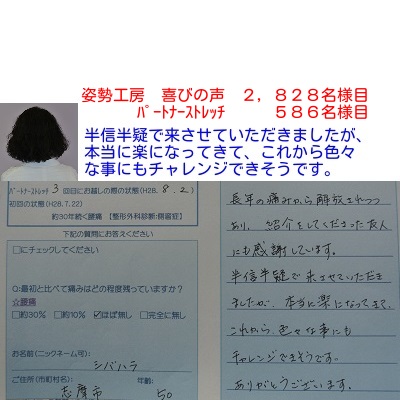 姿勢工房 喜びの声 2,828名様目
パートナーストレッチ 586名様目
半信半疑で来させていただきましたが、
本当に楽になってきて、これから色々
な事にもチャレンジできそうです。
パートナーストレッチ 3 回目にお越しの際の状態(H28. 8.2)
初回の状態(H28.7.22)
約30年続く腰痛 【整形外科診断:側宿症】
下記の質問にお答えください
□にチェックしてください
Q:最初と比べて痛みはどの程度残っていますか?
☆腰痛
□約30% □約10% ☑ほぼ無し □完全に無し
お名前(ニックネーム可):
シバハラ
ご住所(市町村名): 年齢:
志摩市 50
長年の痛みから解放されつつ
あり、紹介をしてくださった友人
にも感謝しています。
半信半疑で来させていただき
ましたが、本当に楽になってきて、
これから、色々な事にも
チャレンジできそうです。
ありがとうございます。